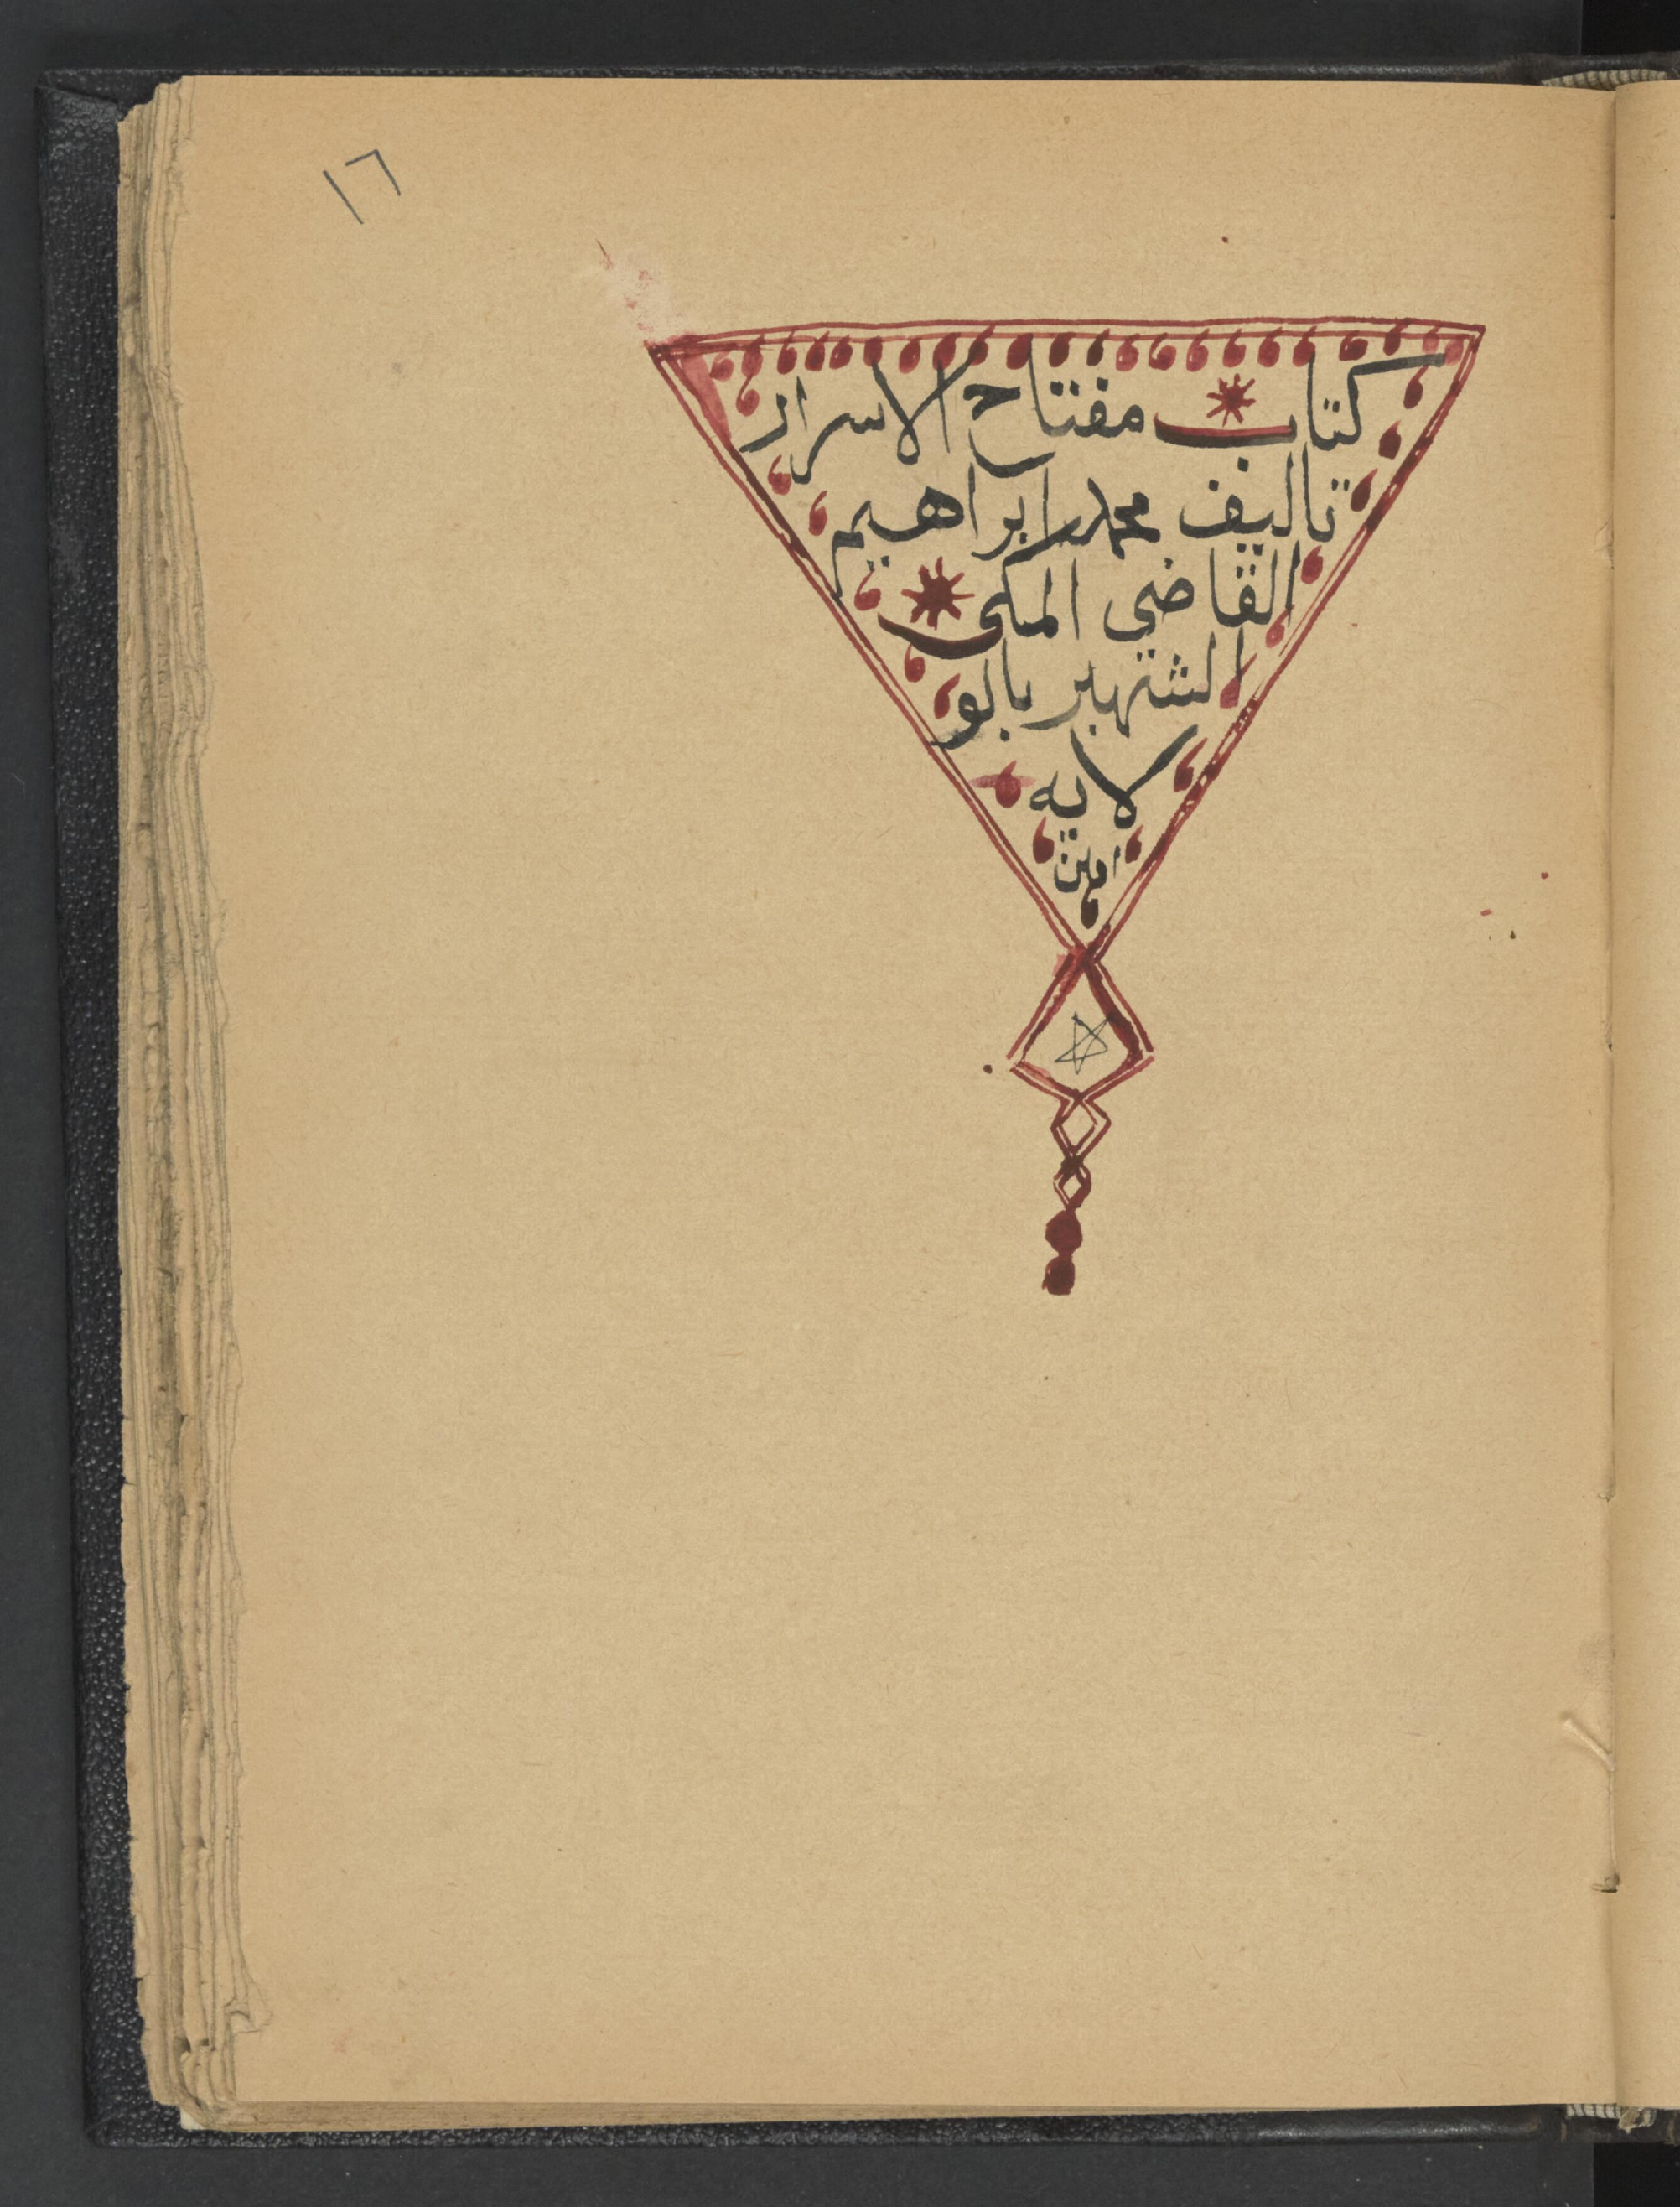 ١٦
كتاب مفتاح الاسرار
تاليف محمد ابراهيم
القاضي المكي
الشهير بالو
لايه
امين